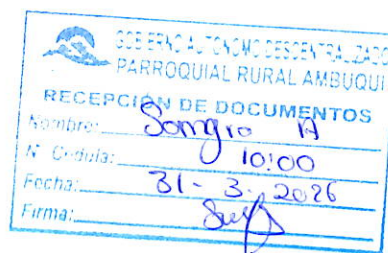 GOBIERNO AUTONOMO DESCENTRALIZADO
PARROQUIAL RURAL AMBUQUI
RECEPCIÓN DE DOCUMENTOS
Nombre:
N. Cedula: 10:00
Fecha: 31-3-2026
Firma: